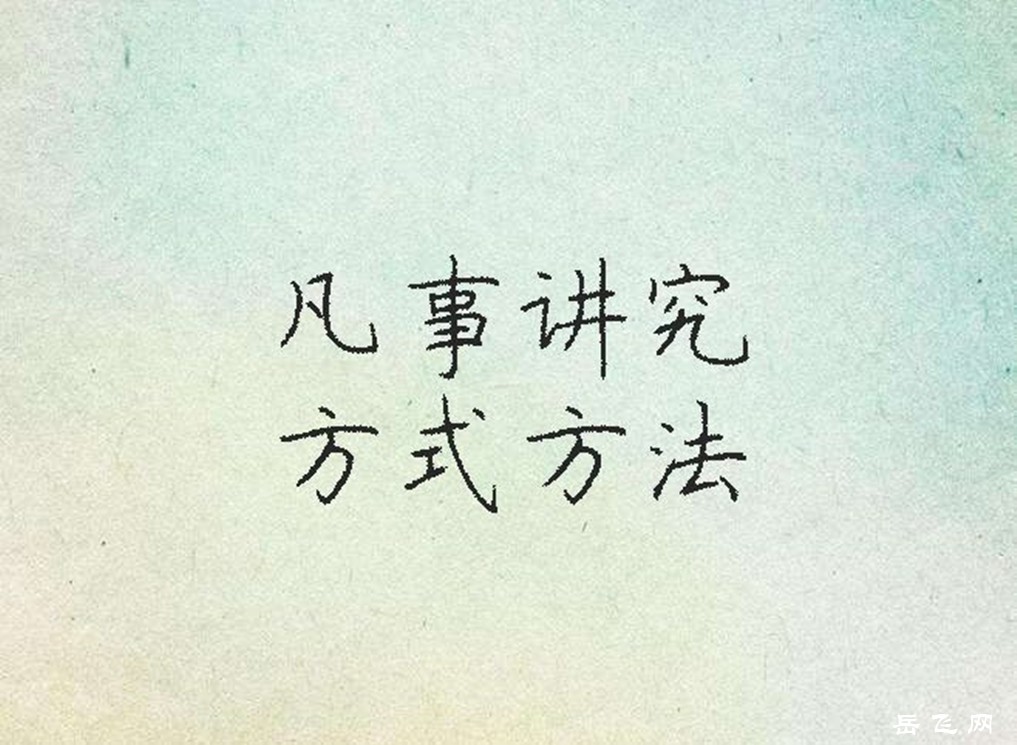 凡事讲究
方式方法
岳飞网